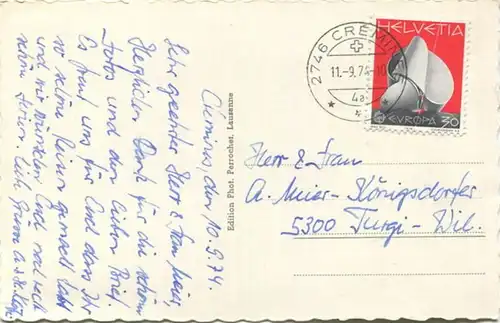 Crémines, den 10.9.74.
Sehr geehrter Herr & Frau Meier,
Herzlichen Dank für die schönen
Fotos und den lieben Brief.
Es freut uns für Sie, dass Ihr
so schöne Reisen gemacht habt
und wir würden Euch
schöne Ferien.
Edition Phot. Perrochet, Lausanne
2746 CRÉMINES
11.-9.74
4a
HELVETIA
EUROPA 30
Herr & Frau
A. Meier-Königsdorfer
5300 Turgi-Wil.